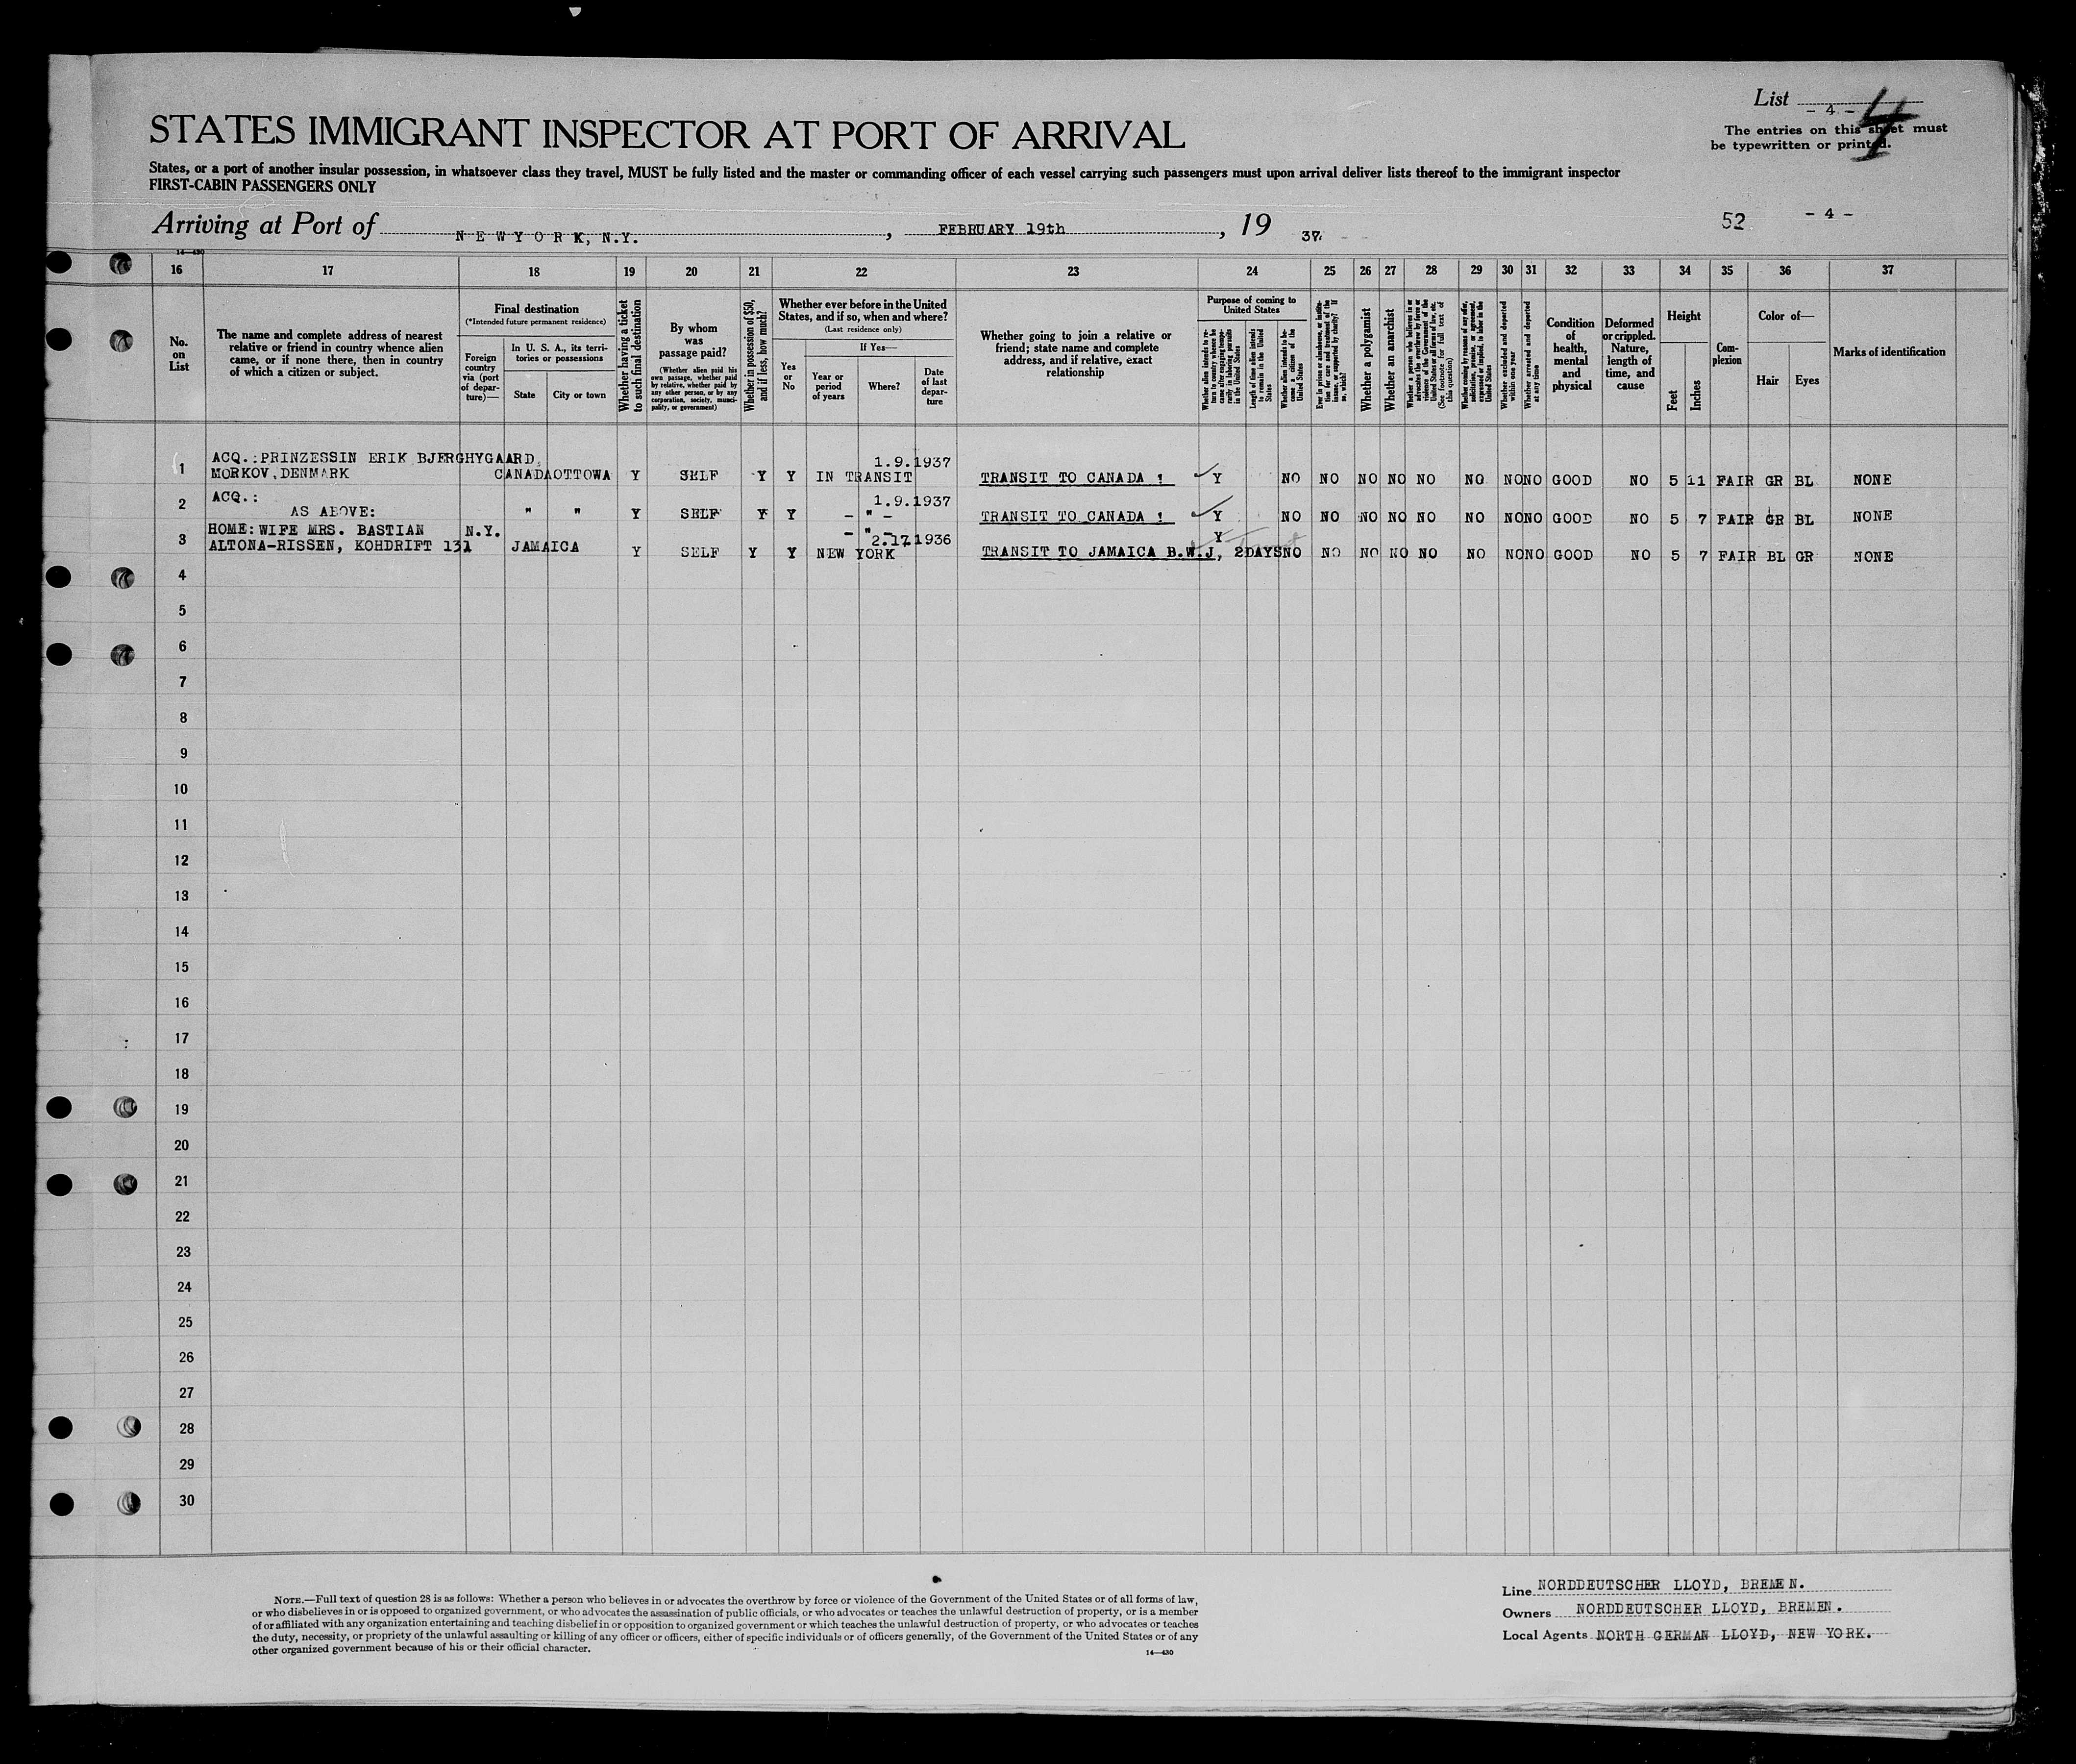 List - 4 - 4
STATES IMMIGRANT INSPECTOR AT PORT OF ARRIVAL
The entries on this sheet must
be typewritten or printed.
States, or a port of another insular possession, in whatsoever class they travel, MUST be fully listed and the master or commanding officer of each vessel carrying such passengers must upon arrival deliver lists thereof to the immigrant inspector
FIRST-CABIN PASSENGERS ONLY
Arriving at Port of NEWYORK, N.Y. , FEBRUARY 19th , 19 37. 52 - 4 -
14—430
16 17 18 19 20 21 22 23 24 25 26 27 28 29 30 31 32 33 34 35 36 37
No. on List
The name and complete address of nearest relative or friend in country whence alien came, or if none there, then in country of which a citizen or subject.
Final destination
(*Intended future permanent residence)
Foreign country via (port of departure)—
In U. S. A., its territories or possessions
State
City or town
Whether having a ticket to such final destination
By whom was passage paid?
(Whether alien paid his own passage, whether paid by relative, whether paid by any other person, or by any corporation, society, municipality, or government)
Whether in possession of $50, and if less, how much?
Whether ever before in the United States, and if so, when and where?
(Last residence only)
Yes or No
If Yes—
Year or period of years
Where?
Date of last departure
Whether going to join a relative or friend; state name and complete address, and if relative, exact relationship
Purpose of coming to United States
Whether alien intends to return to country whence he came after engaging temporarily in laboring pursuits in the United States
Length of time alien intends to remain in the United States
Whether alien intends to become a citizen of the United States
Ever in prison or almshouse, or institution for care and treatment of the insane, or supported by charity? If so, which?
Whether a polygamist
Whether an anarchist
Whether a person who believes in or advocates the overthrow by force or violence of the Government of the United States or all forms of law, etc. (See footnote for full text of this question)
Whether coming by reason of any offer, solicitation, promise, or agreement, expressed or implied, to labor in the United States
Whether excluded and deported within one year
Whether arrested and deported at any time
Condition of health, mental and physical
Deformed or crippled. Nature, length of time, and cause
Height
Feet
Inches
Complexion
Color of—
Hair
Eyes
Marks of identification
ACQ.:PRINZESSIN ERIK BJERGHYGAARD, 1.9.1937
1 MORKOV,DENMARK CANADA OTTOWA Y SELF Y Y IN TRANSIT TRANSIT TO CANADA ! Y NO NO NO NO NO NO NO NO GOOD NO 5 11 FAIR GR BL NONE
ACQ.: 1.9.1937
2 AS ABOVE: " " Y SELF Y Y - " - TRANSIT TO CANADA ! Y NO NO NO NO NO NO NO NO GOOD NO 5 7 FAIR GR BL NONE
HOME:WIFE MRS. BASTIAN N.Y. - " - 2.17.1936 Y
3 ALTONA-RISSEN, KOHDRIFT 131 JAMAICA Y SELF Y Y NEW YORK TRANSIT TO JAMAICA B.W.J, 2DAYS NO NO NO NO NO NO NO NO GOOD NO 5 7 FAIR BL GR NONE
4
5
6
7
8
9
10
11
12
13
14
15
16
17
18
19
20
21
22
23
24
25
26
27
28
29
30
NOTE.—Full text of question 28 is as follows: Whether a person who believes in or advocates the overthrow by force or violence of the Government of the United States or of all forms of law,
or who disbelieves in or is opposed to organized government, or who advocates the assassination of public officials, or who advocates or teaches the unlawful destruction of property, or is a member
of or affiliated with any organization entertaining and teaching disbelief in or opposition to organized government or which teaches the unlawful destruction of property, or who advocates or teaches
the duty, necessity, or propriety of the unlawful assaulting or killing of any officer or officers, either of specific individuals or of officers generally, of the Government of the United States or of any
other organized government because of his or their official character.
14—430
Line NORDDEUTSCHER LLOYD, BREMEN.
Owners NORDDEUTSCHER LLOYD, BREMEN.
Local Agents NORTH GERMAN LLOYD, NEW YORK.